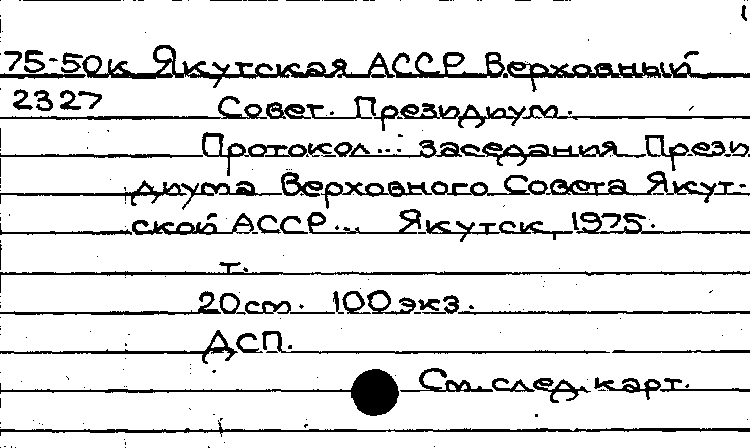 75-50к Якутская АССР. Верховный
2327 Совет. Президиум.
Протокол... заседания Прези
диума Верховного Совета Якут-
ской АССР... Якутск, 1975.
т.
20 см. 100 экз.
ДСП.
См. след. карт.